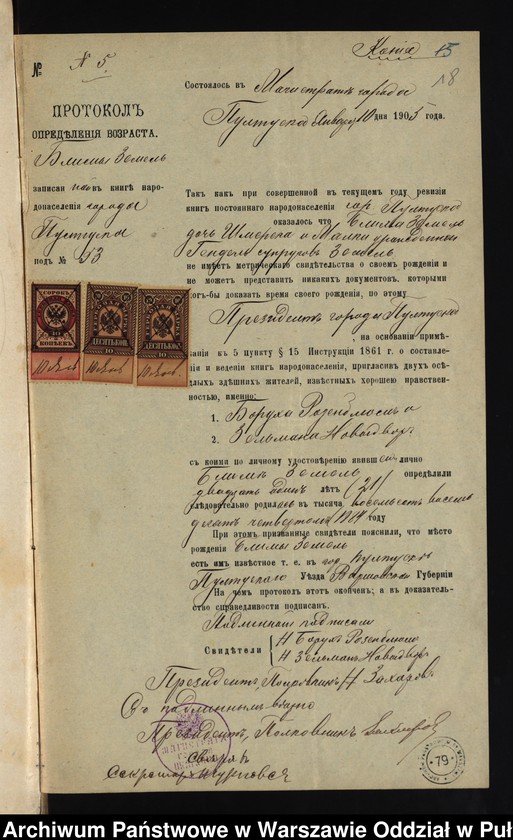 Копія 15
18
№ № 5.
ПРОТОКОЛЪ
ОПРЕДѢЛЕНІЯ ВОЗРАСТА.
Блимы Земель
записан въ книгѣ наро-
донаселенія города
Пултуска
подъ № 93
СОРОКЪ
40
КОПѢЕКЪ
ДЕСЯТЬ КОП
10
ДЕСЯТЬ КОП
10
Состоялось въ Магистратѣ города
Пултуска Января 10 дня 1905 года.
Такъ какъ при совершенной въ текущемъ году ревизіи
книгъ постояннаго народонаселенія гор. Пултуска
оказалось что Блима Земель
дочь Шмерека и Малки урожденной
Гендель супруговъ Земель
не имѣетъ метрическаго свидѣтельства о своемъ рожденіи и
не можетъ представить никакихъ документовъ, которыми
могъ-бы доказать время своего рожденія, по этому
Президентъ города Пултуска
, на основаніи примѣ-
чанія къ 5 пункту § 15 Инструкціи 1861 г. о составле-
ніи и веденіи книгъ народонаселенія, пригласивъ двухъ осѣ-
длыхъ здѣшнихъ жителей, извѣстныхъ хорошею нравствен-
ностью, именно:
1. Боруха Розенблюма и
2. Зельмана Новодвор.
съ коими по личному удостовѣренію явивш лично
Блимы Земель опредѣлили
двадцать одинъ лѣтъ /21/
слѣдовательно родилась въ тысяча восемьсотъ восемь
десятъ четвертомъ 1884 году
При этомъ призванные свидѣтели пояснили, что мѣсто
рожденія Блимы Земель
есть имъ извѣстное т. е. въ гор. Пултускѣ
Пултускаго Уѣзда Варшавской Губерніи
На чемъ протоколъ этотъ оконченъ; а въ доказатель-
ство справедливости подписанъ.
Подлинный подписали
Свидѣтели
/-/ Борухъ Розенблюмъ
/-/ Зельманъ Новодвор.
Президентъ, Полковникъ /-/ Захаровъ
Съ подлиннымъ вѣрно
Президентъ, Полковникъ
Свѣрялъ
Секретарь
79
Archiwum Państwowe w Warszawie Oddział w Puł